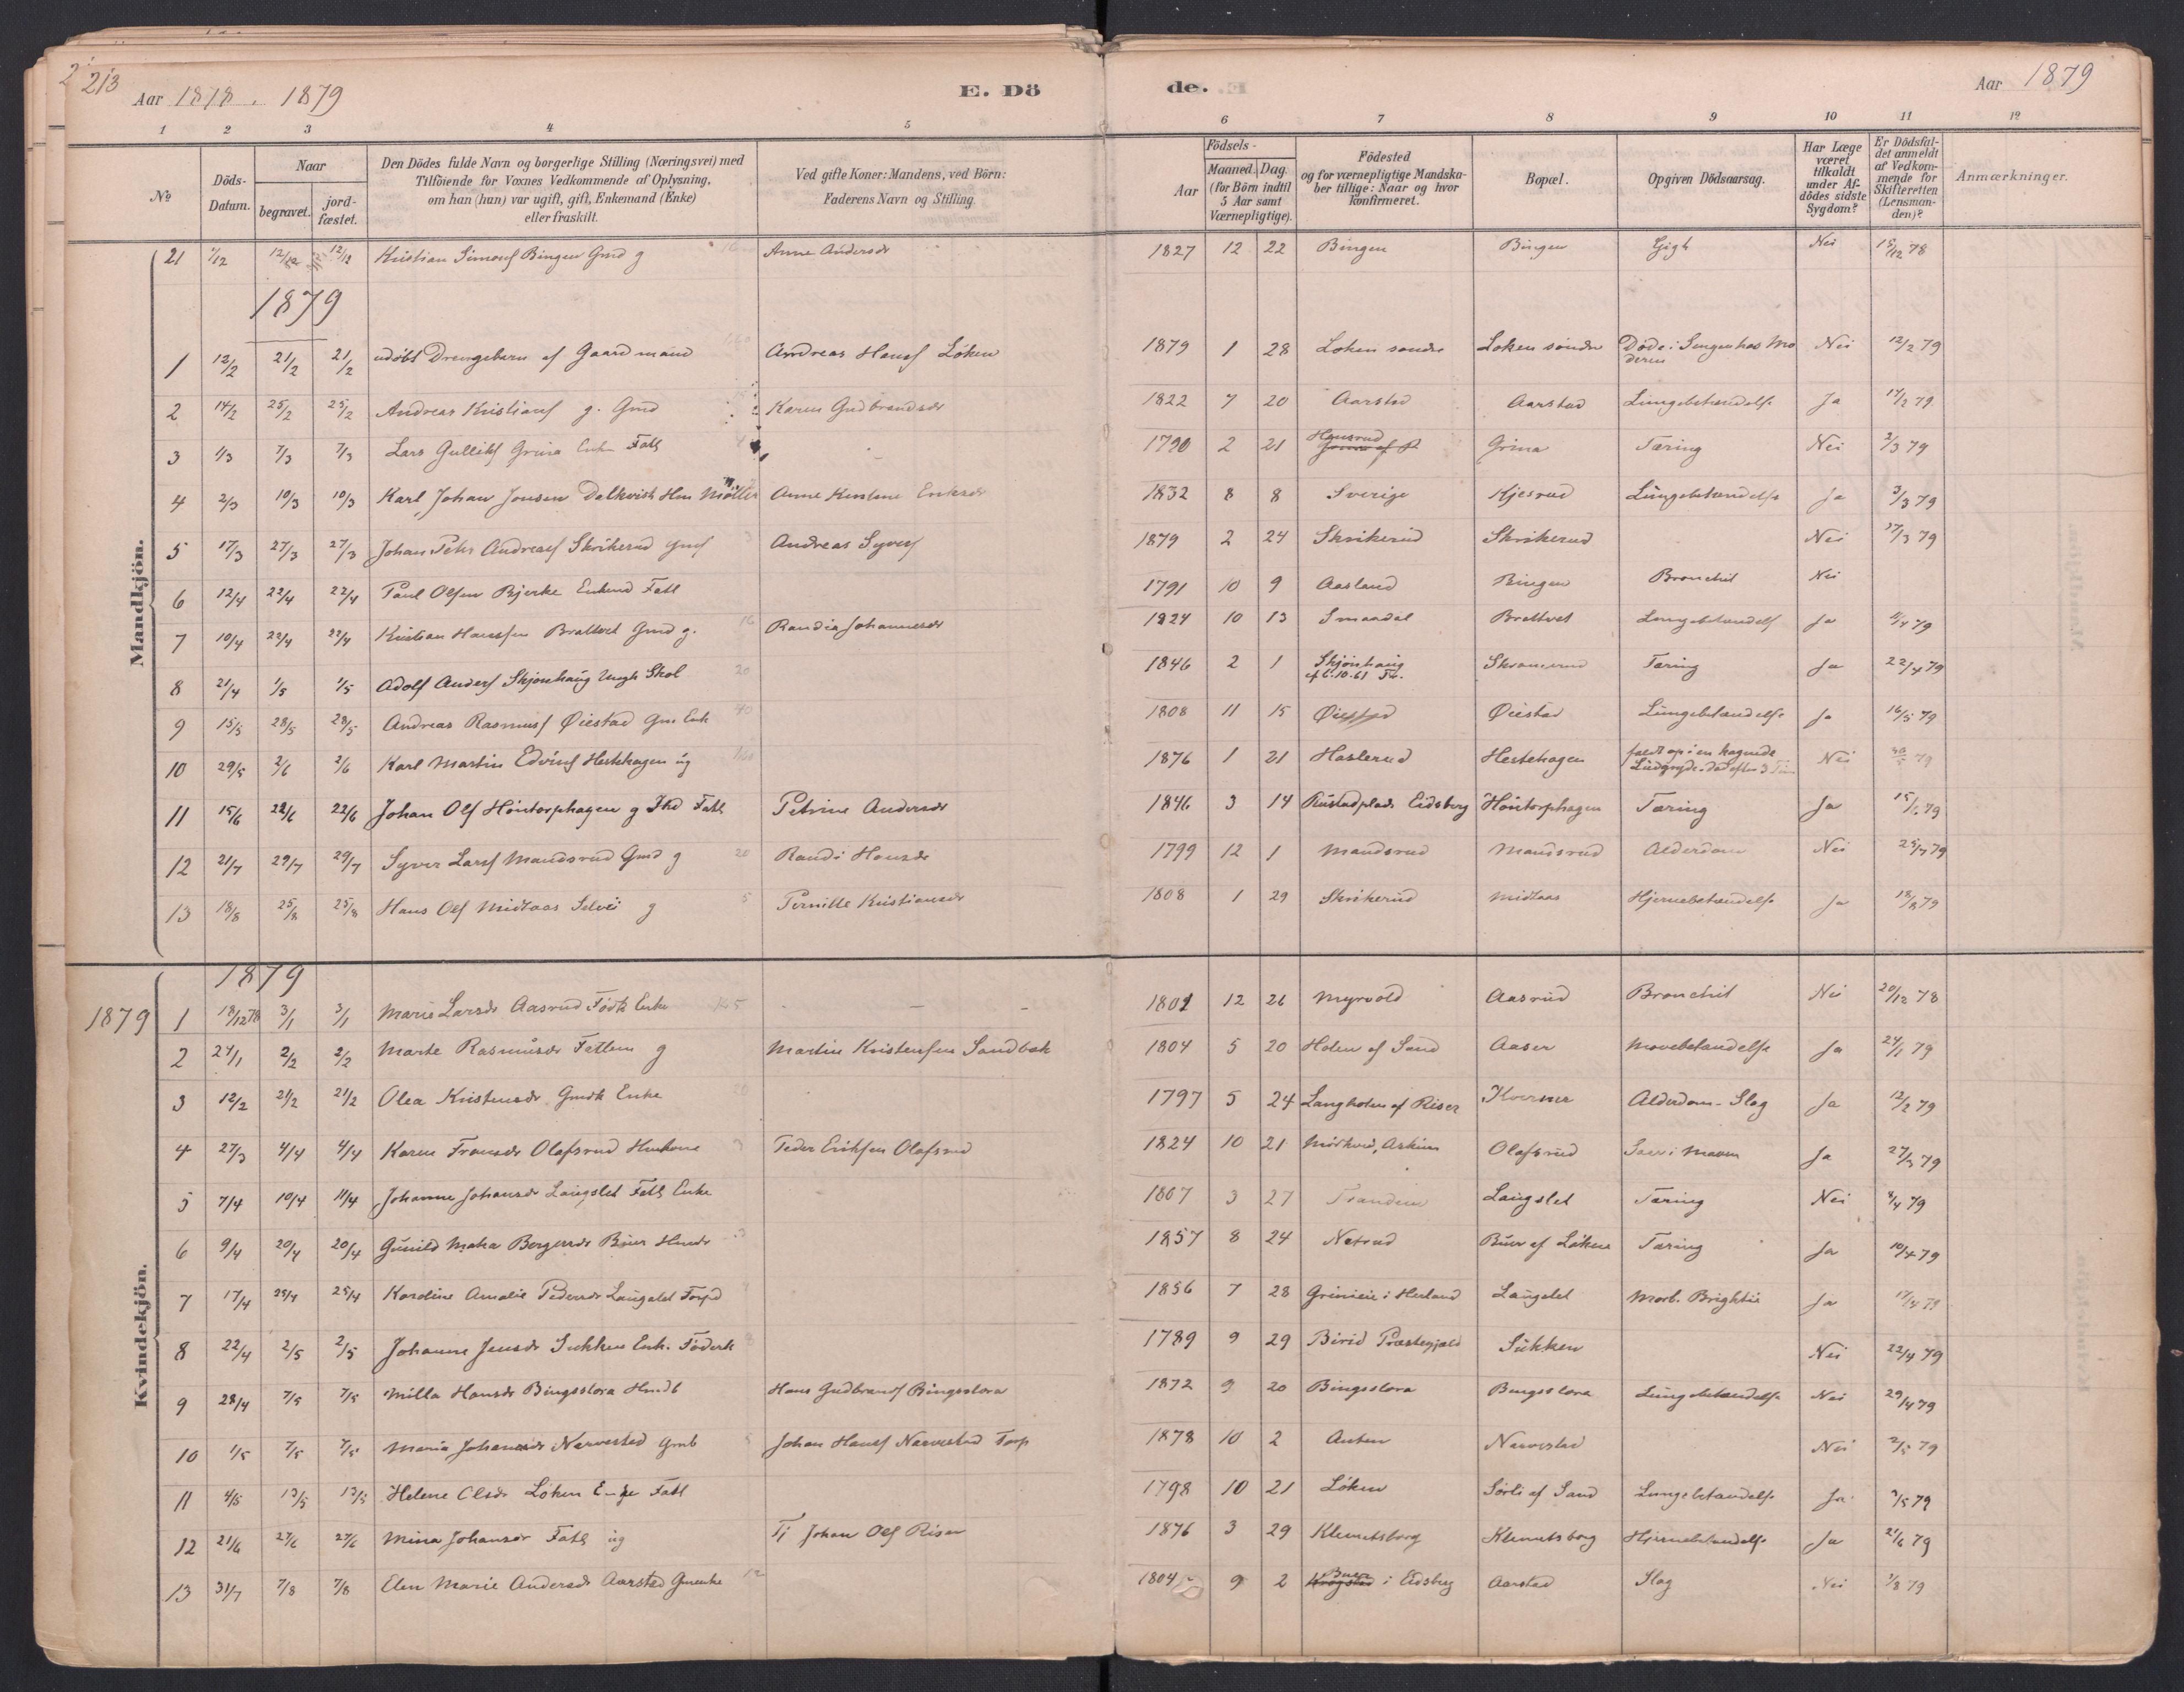 213
Aar 1878. 1879
E. Döde.
Aar 1879
1 2 3 4 5 6 7 8 9 10 11 12
No
Döds-Datum.
Naar
begravet.
jord-fæstet.
Den Dödes fulde Navn og borgerlige Stilling (Næringsvei) med
Tilföiende for Voxnes Vedkommende af Oplysning,
om han (hun) var ugift, gift, Enkemand (Enke)
eller fraskilt.
Ved gifte Koner: Mandens, ved Börn:
Faderens Navn og Stilling.
Födsels-
Aar
Maaned. Dag.
(for Börn indtil
5 Aar samt
Værnepligtige).
Födested
og for værnepligtige Mandska-
ber tillige: Naar og hvor
konfirmeret.
Bopæl.
Opgiven Dödsaarsag.
Har Læge
været
tilkaldt
under Af-
dödes sidste
Sygdom?
Er Dödsfal-
det anmeldt
af Vedkom-
mende for
Skifteretten
(Lensman-
den)?
Anmærkninger.
Mandkjön.
21 12/12 12/12 Kristian Simons Bingen Gmd g Anne Andersdr 1827 12 22 Bingen Bingen Gigt Nei 15/12 78
1879
1 12/2 21/2 21/2 udöbt Drengebarn af Gaardmand Andreas Hansf Löken 1879 1 28 Loken sondre Loken söndre Döde i Sengen hos Mo
deren Nei 12/2 79
2 14/2 25/2 25/2 Andreas Kristiansf g. Gmd Karen Gudbrandsdr 1822 7 20 Aarstad Aarstad Lungebetændelse Ja 17/2 79
3 1/3 7/3 7/3 Lars Gulliksf Grina Enkm Fatt 1790 2 21 Hansrud Grina Tæring Nei 2/3 79
4 2/3 10/3 10/3 Karl Johan Jonsen Dalkvist Hm Möller Anne Eriksdr 1832 8 8 Sverige Kjesrud Lungebetændelse Ja 3/3 79
5 17/3 27/3 27/3 Johan Peter Andreasf Skrikerud Andreas Syvers 1879 2 24 Skrikerud Skrikerud Nei 17/3 79
6 12/4 22/4 22/4 Paul Olsen Bjerke Enkmd Fatt 1791 10 9 Aasland Bingen Bronchit Nei
7 10/4 22/4 22/4 Kristian Hansen Brattvet Gmd g. Randia Johannesdr 1824 10 13 Smaadal Brattvet Lungebetændelse Ja 11/4 79
8 21/4 1/5 1/5 Adolf Andersf Skjönhaug Ungk Skol 1846 2 1 Skjönhaug
cf 6.10.61 Tr. Skramerud Tæring Ja 22/4 79
9 15/5 28/5 28/5 Andreas Rasmusf Øiestad Gm Enk 1808 11 15 Øiestad Øiestad Lungebetændelse Ja 16/5 79
10 29/5 2/6 2/6 Karl Martin Edvinsf Hestehagen ug 1876 1 21 Haslerud Hestehagen faldt op i en kogende Nei 79
11 15/6 22/6 22/6 Johan Olsf Höntorphagen g Ihd Fatt Petrine Andersdr 1846 3 14 Rustadplads Eidsberg Höntorphagen Tæring Ja 15/6 79
12 21/7 29/7 29/7 Syver Larsf Mandsrud Gmd g Randi Hansdr 1799 12 1 Mandsrud Mandsrud Alderdom Nei 25/7 79
13 18/8 25/8 25/8 Hans Olsf Midtaas Selvei g Pernille Kristiansdr 1808 1 29 Skrikerud Midtaas Hjernebetændelse Ja 18/8 79
Kvindekjön.
1879
1879 1 18/12 78 3/1 3/1 Marie Larsdr Aasrud Födk Enke 1801 12 26 Myrvold Aasrud Bronchit Nei 20/12 78
2 24/1 2/2 2/2 Marte Rasmusdr Fattem g Martin Kristensen Sandbæk 1804 5 20 Holen af Sand Aaser Mavebetændelse Ja 24/1 79
3 12/2 21/2 21/2 Olea Kristensdr Gmdk Enke 1797 5 24 Langholen af Riser Kverner Alderdom - Slag Ja 12/2 79
4 27/3 4/4 4/4 Karen Fransdr Olafsrud Huskone Peder Eriksen Olafsrud 1824 10 21 Askim Olafsrud Saar i Maven Ja 27/3 79
5 7/4 10/4 11/4 Johanne Johansdr Langslet Fatt Enke 1807 3 27 Tranden Langslet Tæring Nei 8/4 79
6 9/4 20/4 20/4 Gunild Matea Borgersdr Buer Hmdr 1857 8 24 Næsrud Buer af Löken Tæring Ja 10/4 79
7 17/4 25/4 25/4 Karoline Amalie Pedersdr Langslet Torpd 1856 7 28 Grinieie i Herland Langslet Morb. Brightii Ja 17/4 79
8 22/4 2/5 2/5 Johanne Jensdr Sukken Enk. Föderk 1789 9 29 Birid Præstegjæld Sukken Nei 22/4 79
9 28/4 7/5 7/5 Milla Hansdr Bingsstora Hmdb Hans Gudbrandsf Bingsstora 1872 9 20 Bingsstora Bingsstora Lungebetændelse Nei 29/4 79
10 1/5 7/5 7/5 Maria Johansdr Narvestad Gmb Johan Hansf Narvestad Torp 1878 10 2 Auten Narvestad Nei 2/5 79
11 4/5 13/5 13/5 Helene Olsdr Löken Enke Fatt 1798 10 21 Löken Sörli af Sand Lungebetændelse Ja 7/5 79
12 21/6 27/6 27/6 Mina Johansdr Fatt ug Tj Johan Olsf Riser 1876 3 29 Klemetsborg Klemetsborg Hjernebetændelse Ja 21/6 79
13 31/7 7/8 7/8 Elen Marie Andersdr Aarstad Gmenke 1804 9 2 Buer i Eidsberg Aarstad Slag Nei 1/8 79